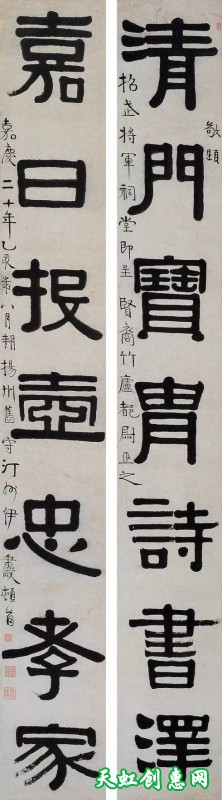 清門寶胄詩書澤
敬題
昭武將軍祠堂即呈賢裔竹廬都尉正之
嘉日投壺忠孝家
嘉慶二十年乙亥歲八月朔揚州舊守汀州伊秉綬頓首
天虹创意网